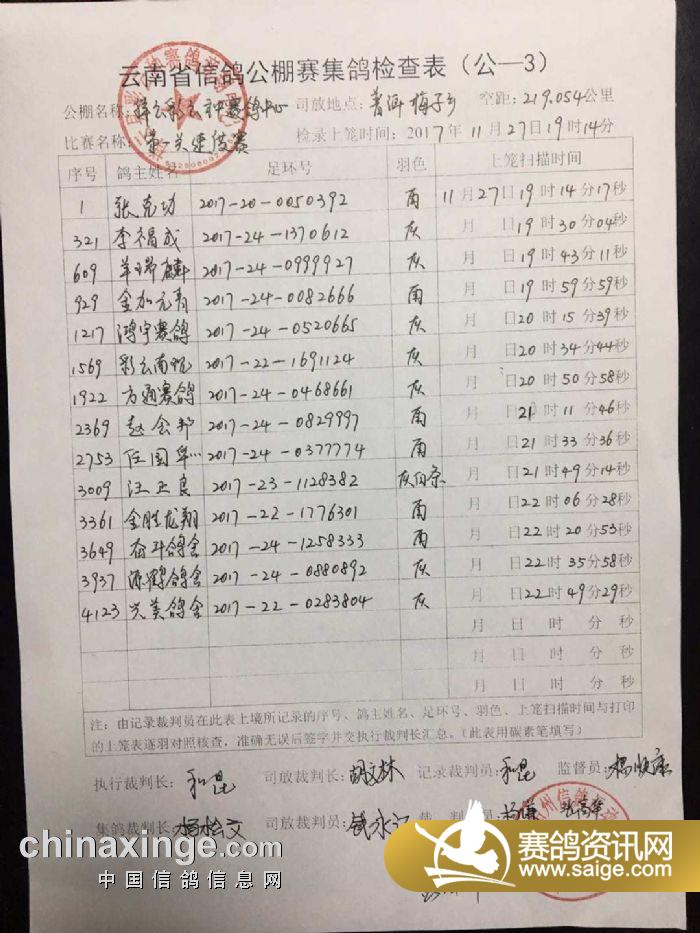 云南省信鸽公棚赛集鸽检查表（公—3）
公棚名称: 彩云 赛鸽中心 司放地点: 普洱 梅子乡 空距: 219.054公里
比赛名称: 第一关 赛 检录上笼时间: 2017年11月27日19时14分
序号 鸽主姓名 足环号 羽色 上笼扫描时间
1 张克功 2017-20-0050392 雨 11月27日19时14分17秒
321 李福成 2017-24-1370612 灰 月 日19时30分04秒
609 麟 2017-24-0999927 灰 月 日19时43分11秒
929 金 元青 2017-24-0082666 雨 月 日19时59分59秒
1217 鸿宇赛鸽 2017-24-0520665 灰 月 日20时15分39秒
1569 彩云南 2017-22-1691124 灰 月 日20时34分44秒
1922 方通赛鸽 2017-24-0468661 灰 月 日20时50分58秒
2369 赵会邦 2017-24-0829997 雨 月 日21时11分46秒
2753 任国军… 2017-24-0377774 雨 月 日21时33分36秒
3009 汪正良 2017-23-1128382 灰白条 月 日21时49分14秒
3361 金胜龙翔 2017-22-1776301 雨 月 日22时06分28秒
3649 奋斗鸽舍 2017-24-1258333 雨 月 日22时20分53秒
3937 源鹤鸽舍 2017-24-0880892 灰 月 日22时35分58秒
4123 兴美鸽舍 2017-22-0283804 灰 月 日22时49分29秒
月 日 时 分 秒
月 日 时 分 秒
月 日 时 分 秒
注: 由记录裁判员在此表上填所记录的序号、鸽主姓名、足环号、羽色、上笼扫描时间与打印
的上笼表逐羽对照核查，准确无误后签字并交执行裁判长汇总。（此表用碳素笔填写）
执行裁判长: 和昆 司放裁判长: 胡文林 记录裁判员: 和昆 监督员: 杨
集鸽裁判长: 杨松文 司放裁判员: 裁 判 员: 张高华
chinaxinge.com
中国信鸽信息网
赛鸽资讯网
www.saige.com